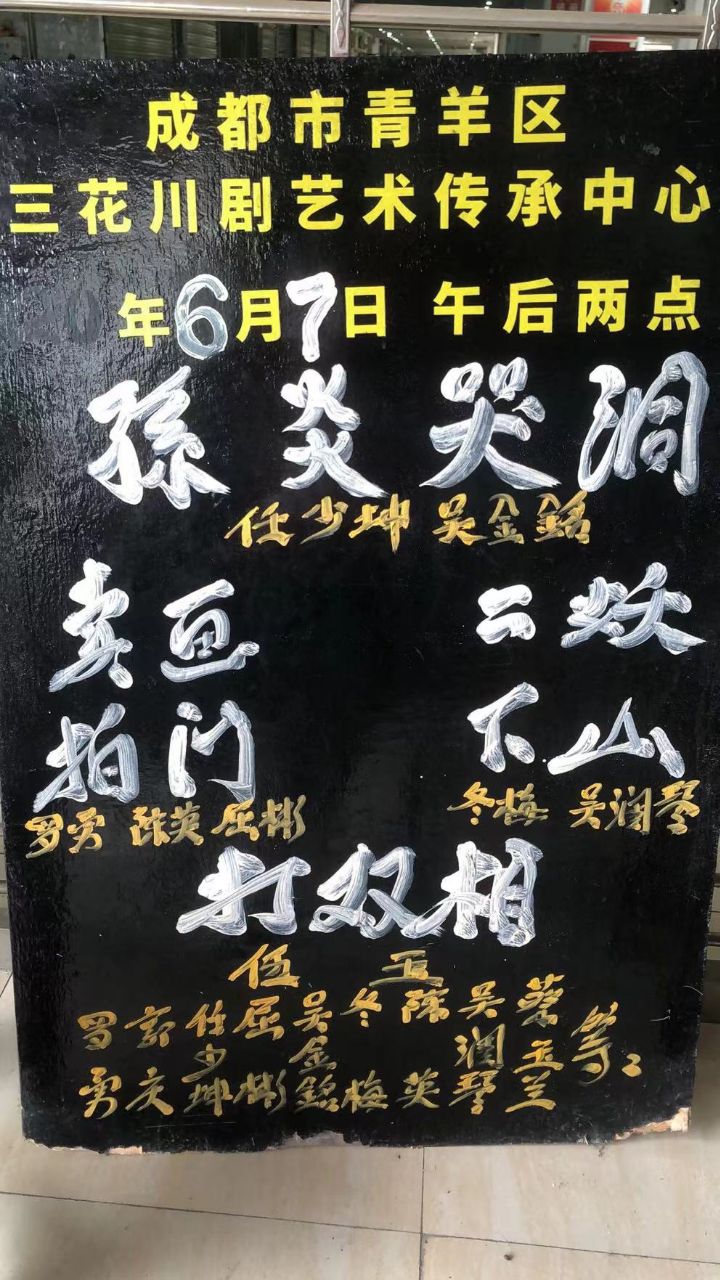 成都市青羊区
三花川剧艺术传承中心
年6月7日 午后两点
孫炎哭洞
任少坤 吴金銘
卖鱼 二妖
拍门 下山
罗勇 陈英 屈彬 冬梅 吴润琴
打双相
伍玉
罗 任屈吴冬陈吴蔡等
少 金 润玉
勇庆坤彬銘梅英琴兰